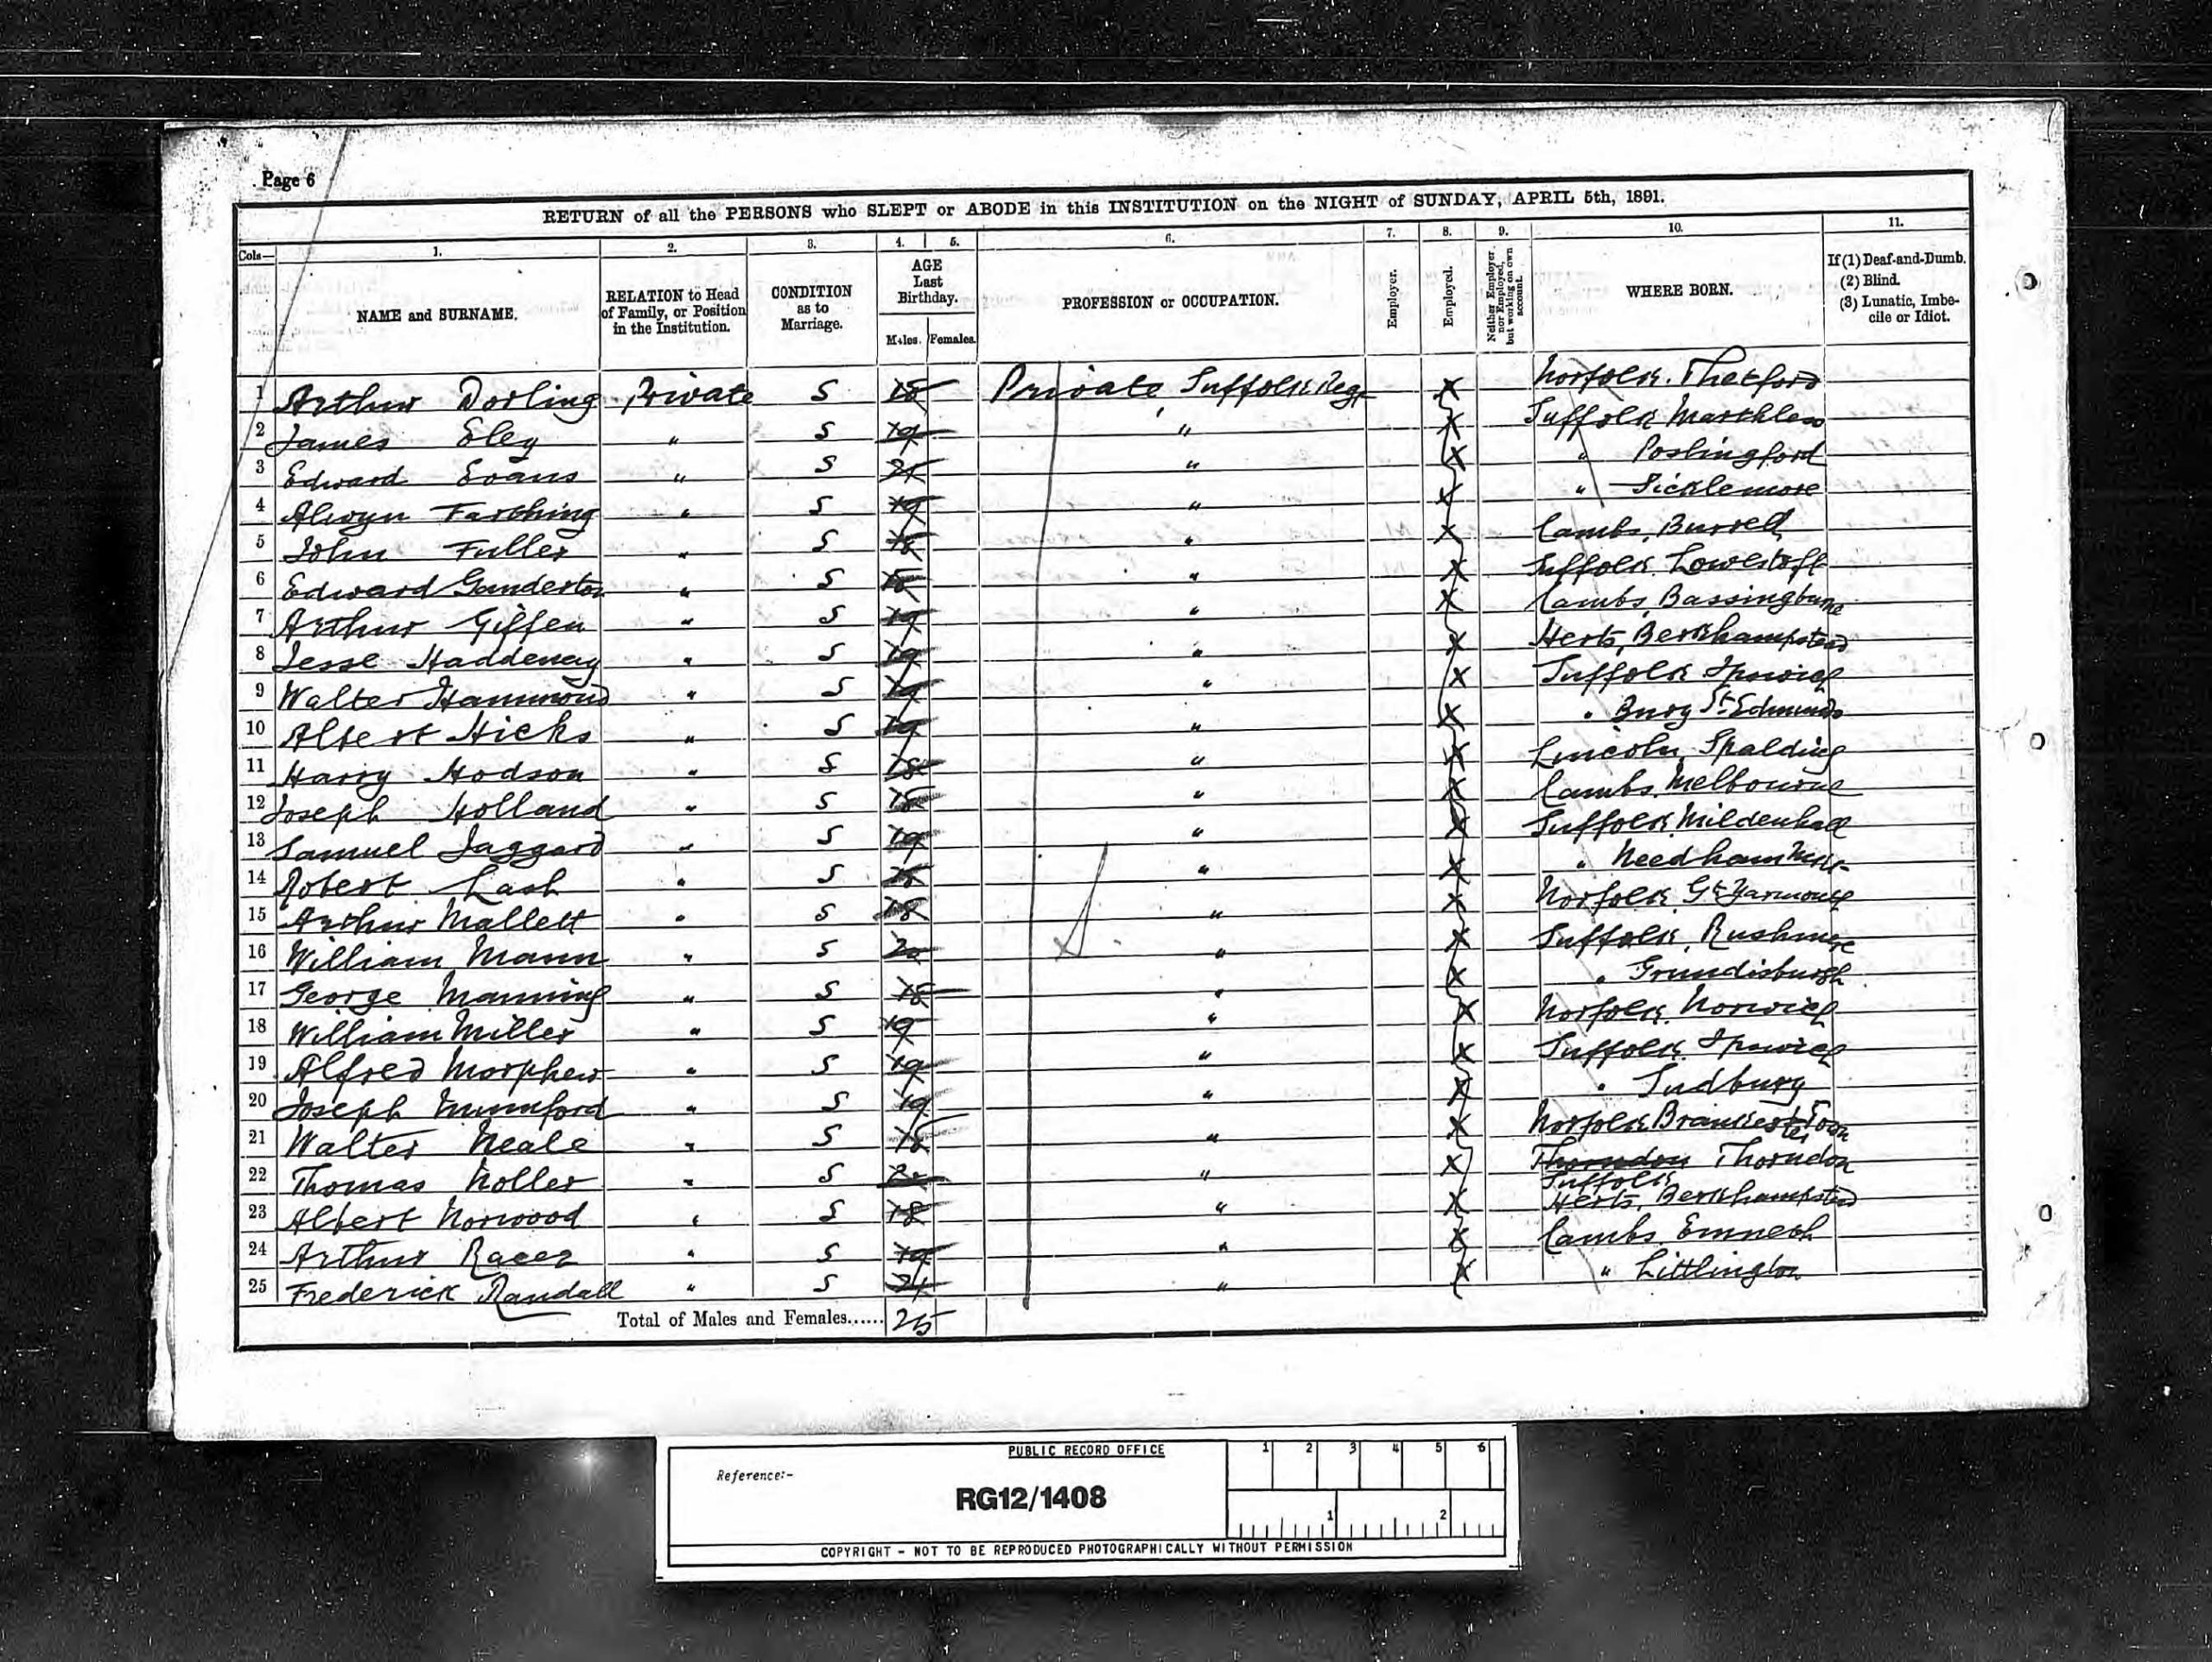 Page 6
RETURN of all the PERSONS who SLEPT or ABODE in this INSTITUTION on the NIGHT of SUNDAY, APRIL 5th, 1891.
Cols— 1. 2. 3. 4. 5. 6. 7. 8. 9. 10. 11.
NAME and SURNAME. RELATION to Head of Family, or Position in the Institution. CONDITION as to Marriage. AGE Last Birthday. Males. Females. PROFESSION or OCCUPATION. Employer. Employed. Neither Employer nor Employed, but working on own account. WHERE BORN. If (1) Deaf-and-Dumb. (2) Blind. (3) Lunatic, Imbecile or Idiot.
1 Arthur Dorling Private S 18 Private Suffolk Regt X Norfolk. Thetford
2 James Eley " S 19 " X Suffolk
3 Edward Evans " S 21 " X " Poslingford
4 Alwyn Farthing " S 19 " X " Ticklemore
5 John Fuller " S 18 " X Cambs, Burrell
6 Edward Ganderton " S 18 " X Suffolk Lowestoft
7 Arthur Giffen " S 19 " X Cambs, Bassingburne
8 Jesse Haddenay " S 19 " X Herts, Berkhampstead
9 Walter Hammond " S 19 " X Suffolk Ipswich
10 Albert Hicks " S 19 " X " Bury St Edmunds
11 Harry Hodson " S 18 " X Lincoln, Spalding
12 Joseph Holland " S 18 " X Cambs. Melbourne
13 Samuel Jaggard " S 19 " X Suffolk Mildenhall
14 Robert Lash " S " X " Needham Mkt
15 Arthur Mallett " S 18 " X Norfolk Gt Yarmouth
16 William Mann " S 20 " X Suffolk, Rushmere
17 George Manning " S 18 " X " Grundisburgh
18 William Miller " S 19 " X Norfolk. Norwich
19 Alfred Morphew " S 19 " X Suffolk. Ipswich
20 Joseph Mumford " S 19 " X " Sudbury
21 Walter Neale " S 18 " X Norfolk Brancester Town
22 Thomas Noller " S " X Thorndon Thorndon Suffolk
23 Albert Norwood " S 18 " X Herts, Berkhampsted
24 Arthur Racez " S 19 " X Cambs. Emneth
25 Frederick Randall " S 21 " X " Littlington
Total of Males and Females...... 25
PUBLIC RECORD OFFICE
Reference:-
RG12/1408
1 2 3 4 5 6
1 2
COPYRIGHT - NOT TO BE REPRODUCED PHOTOGRAPHICALLY WITHOUT PERMISSION